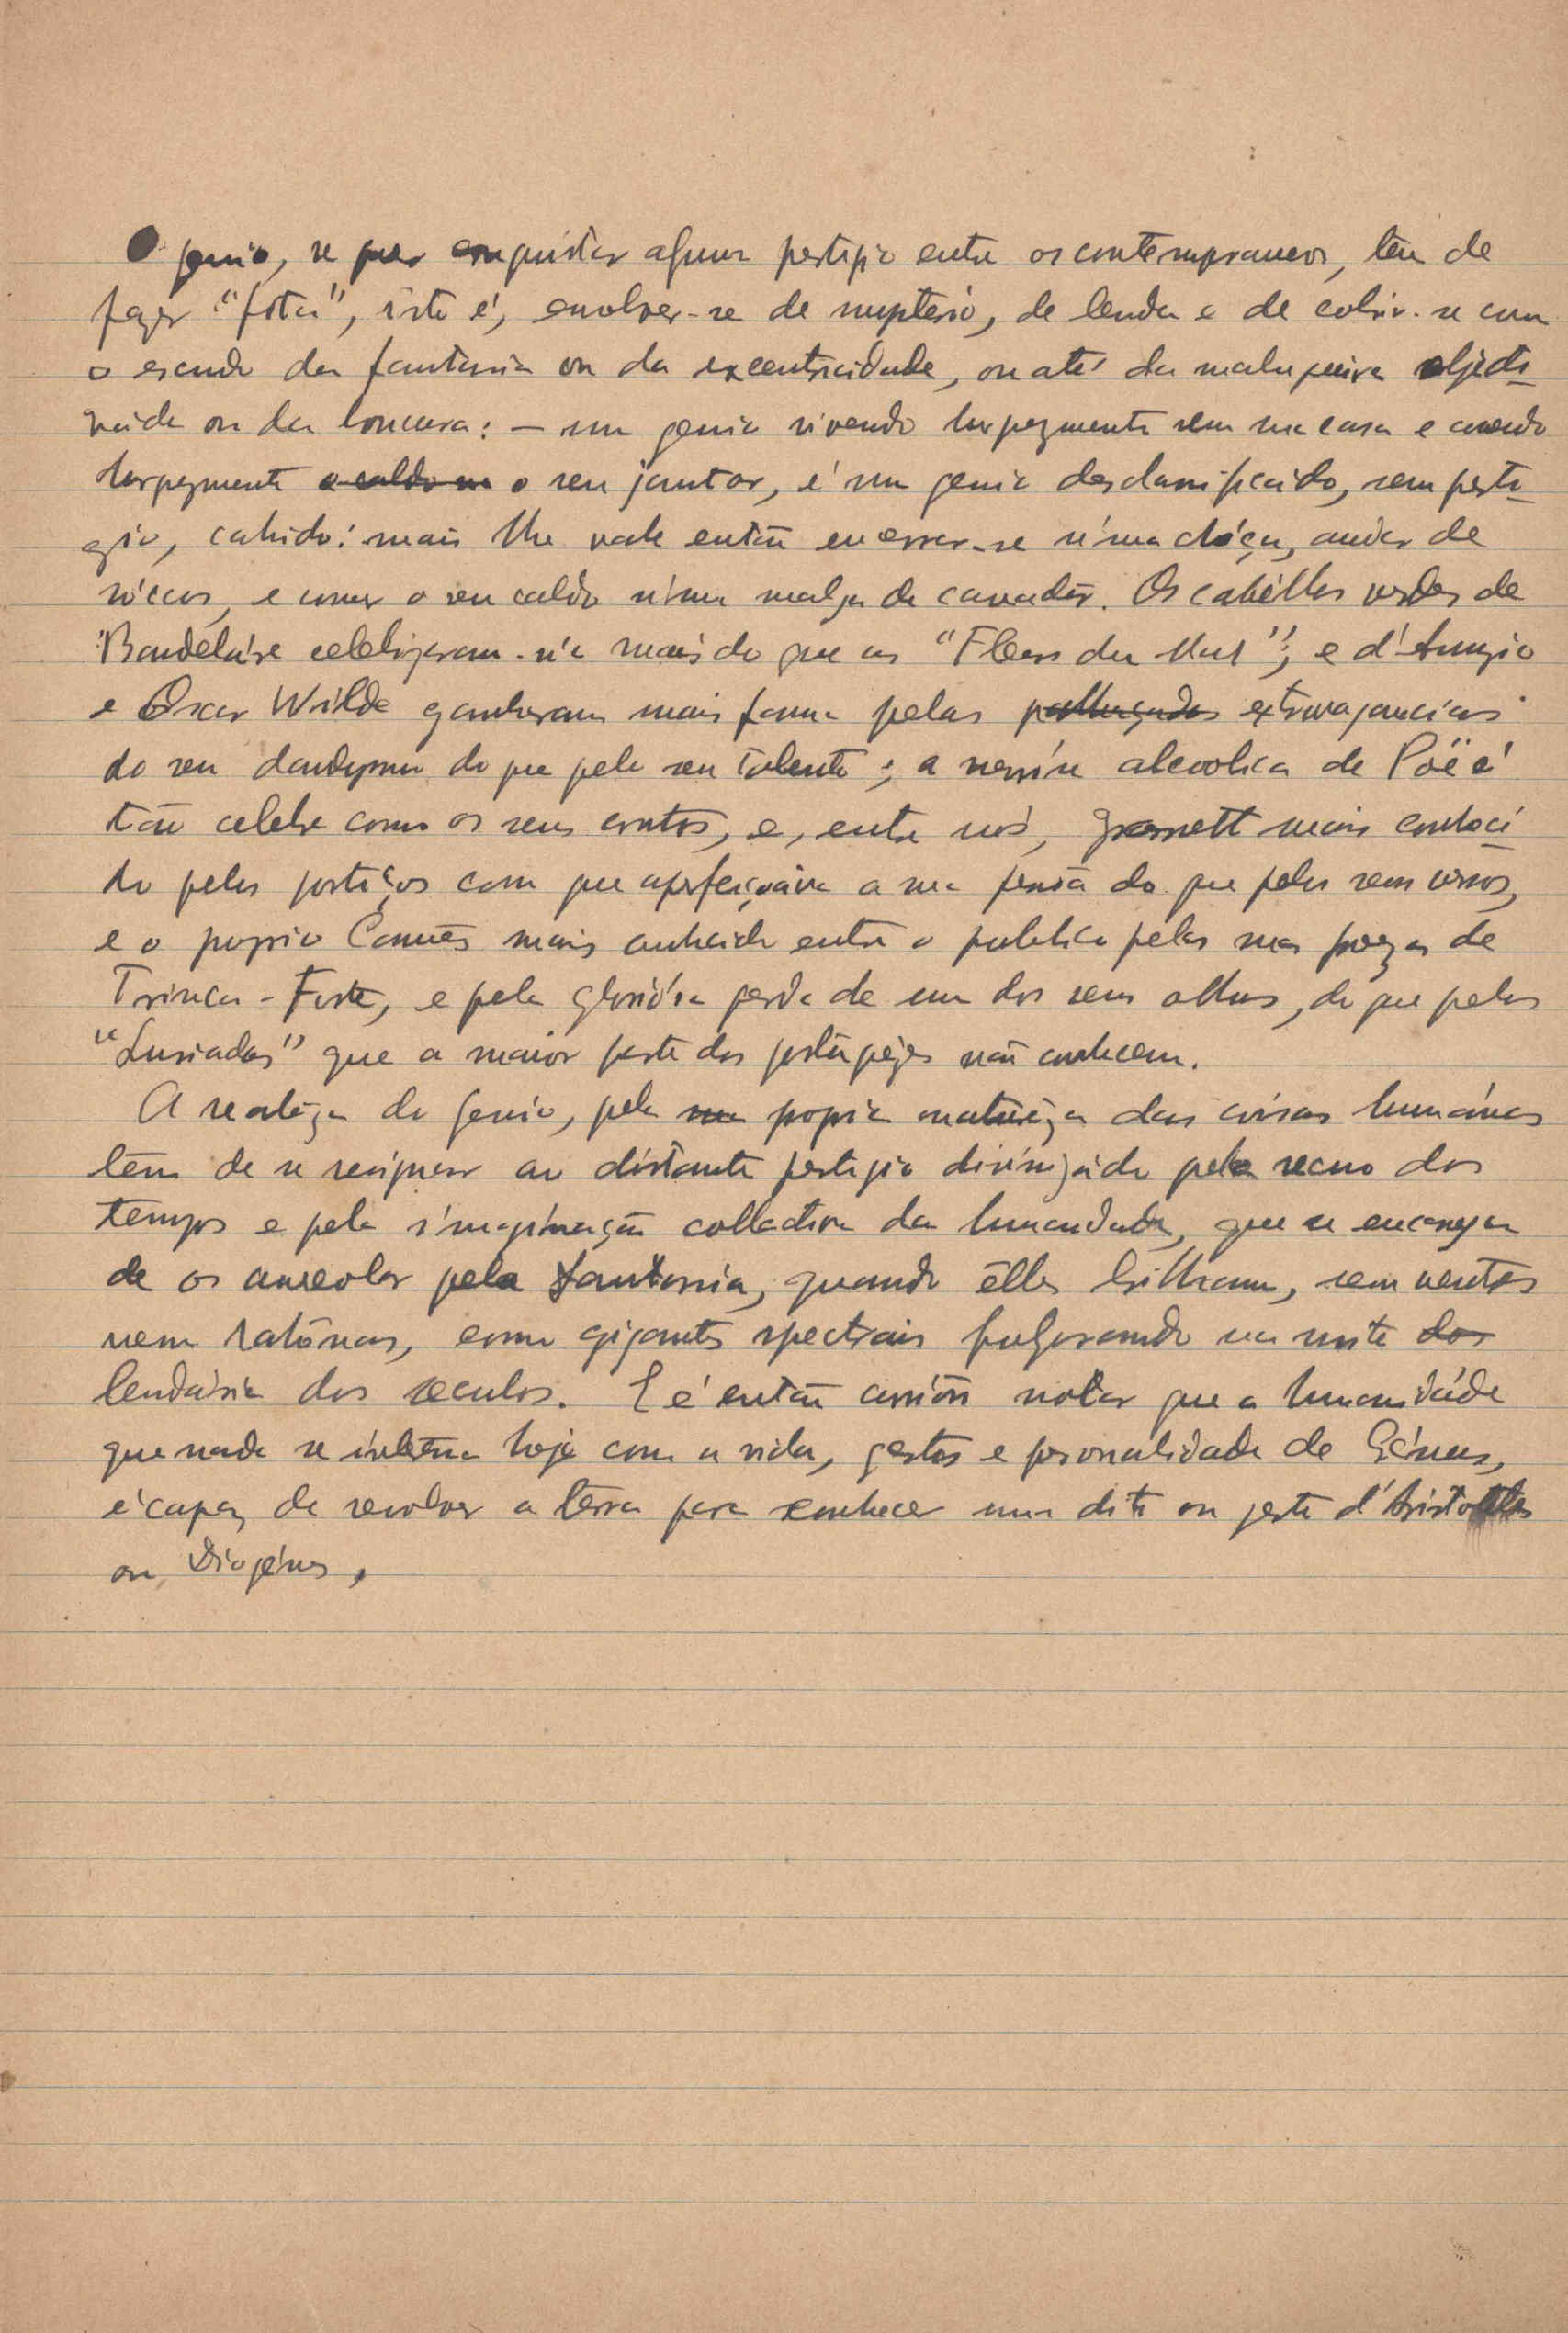 O genio, se quer conquistar algum prestigio entre os contemporaneos, tem de
fazer "fita", isto é, envolver-se de mysterio, de lenda e de cobrir-se com
o escudo da fantasia ou da excentricidade, ou até da maluqueira
ou da loucura: — um genio vivendo burguezmente sem sua casa e comendo
burguezmente o caldo o seu jantar, é um genio desclassificado, sem presti-
gio, cahido: mais lhe vale então encerrar-se n'uma chóça, andar de
sóccos, e comer o seu caldo n'uma malga de cavador. Os cabêllos verdes de
Baudelaire celebrizaram-n'o mais do que as "Fleurs du Mal"; e d'Anunzio
e Oscar Wilde ganharam mais fama pelas extravagancias
do seu dandysmo do que pelo seu talento; a alcoolica de Pöe é
tão celebre como os seus contos, e, entre nós, mais conheci-
do pelos postiços com que aperfeiçoáva a sua do que pelos seus versos,
e o proprio Camões mais conhecido entre o publico pelas suas proezas de
Trinca-Forte, e pela gloriósa perda de um dos seus olhos, do que pelos
"Lusiadas" que a maior parte dos portuguêzes não conhecem.
A realêza do genio, pela sua propria naturêza das coisas humánas
tem de se ao distante prestigio divinizádo pelo recuo dos
tempos e pela imaginação collectiva da humanidade, que se encarrega
de os aureolar pela fantasia, quando êlles brilham, sem ventres
nem, como gigantes spectrais fulgurando na noite dos
lendária dos seculos. E é então curiôso notar que a humanidáde
que nada se interêssa hoje com a vida, gestos e personalidade de Génios,
é capaz de revolver a terra para conhecer um dito ou gesto d'Aristoteles
ou Diogénes.